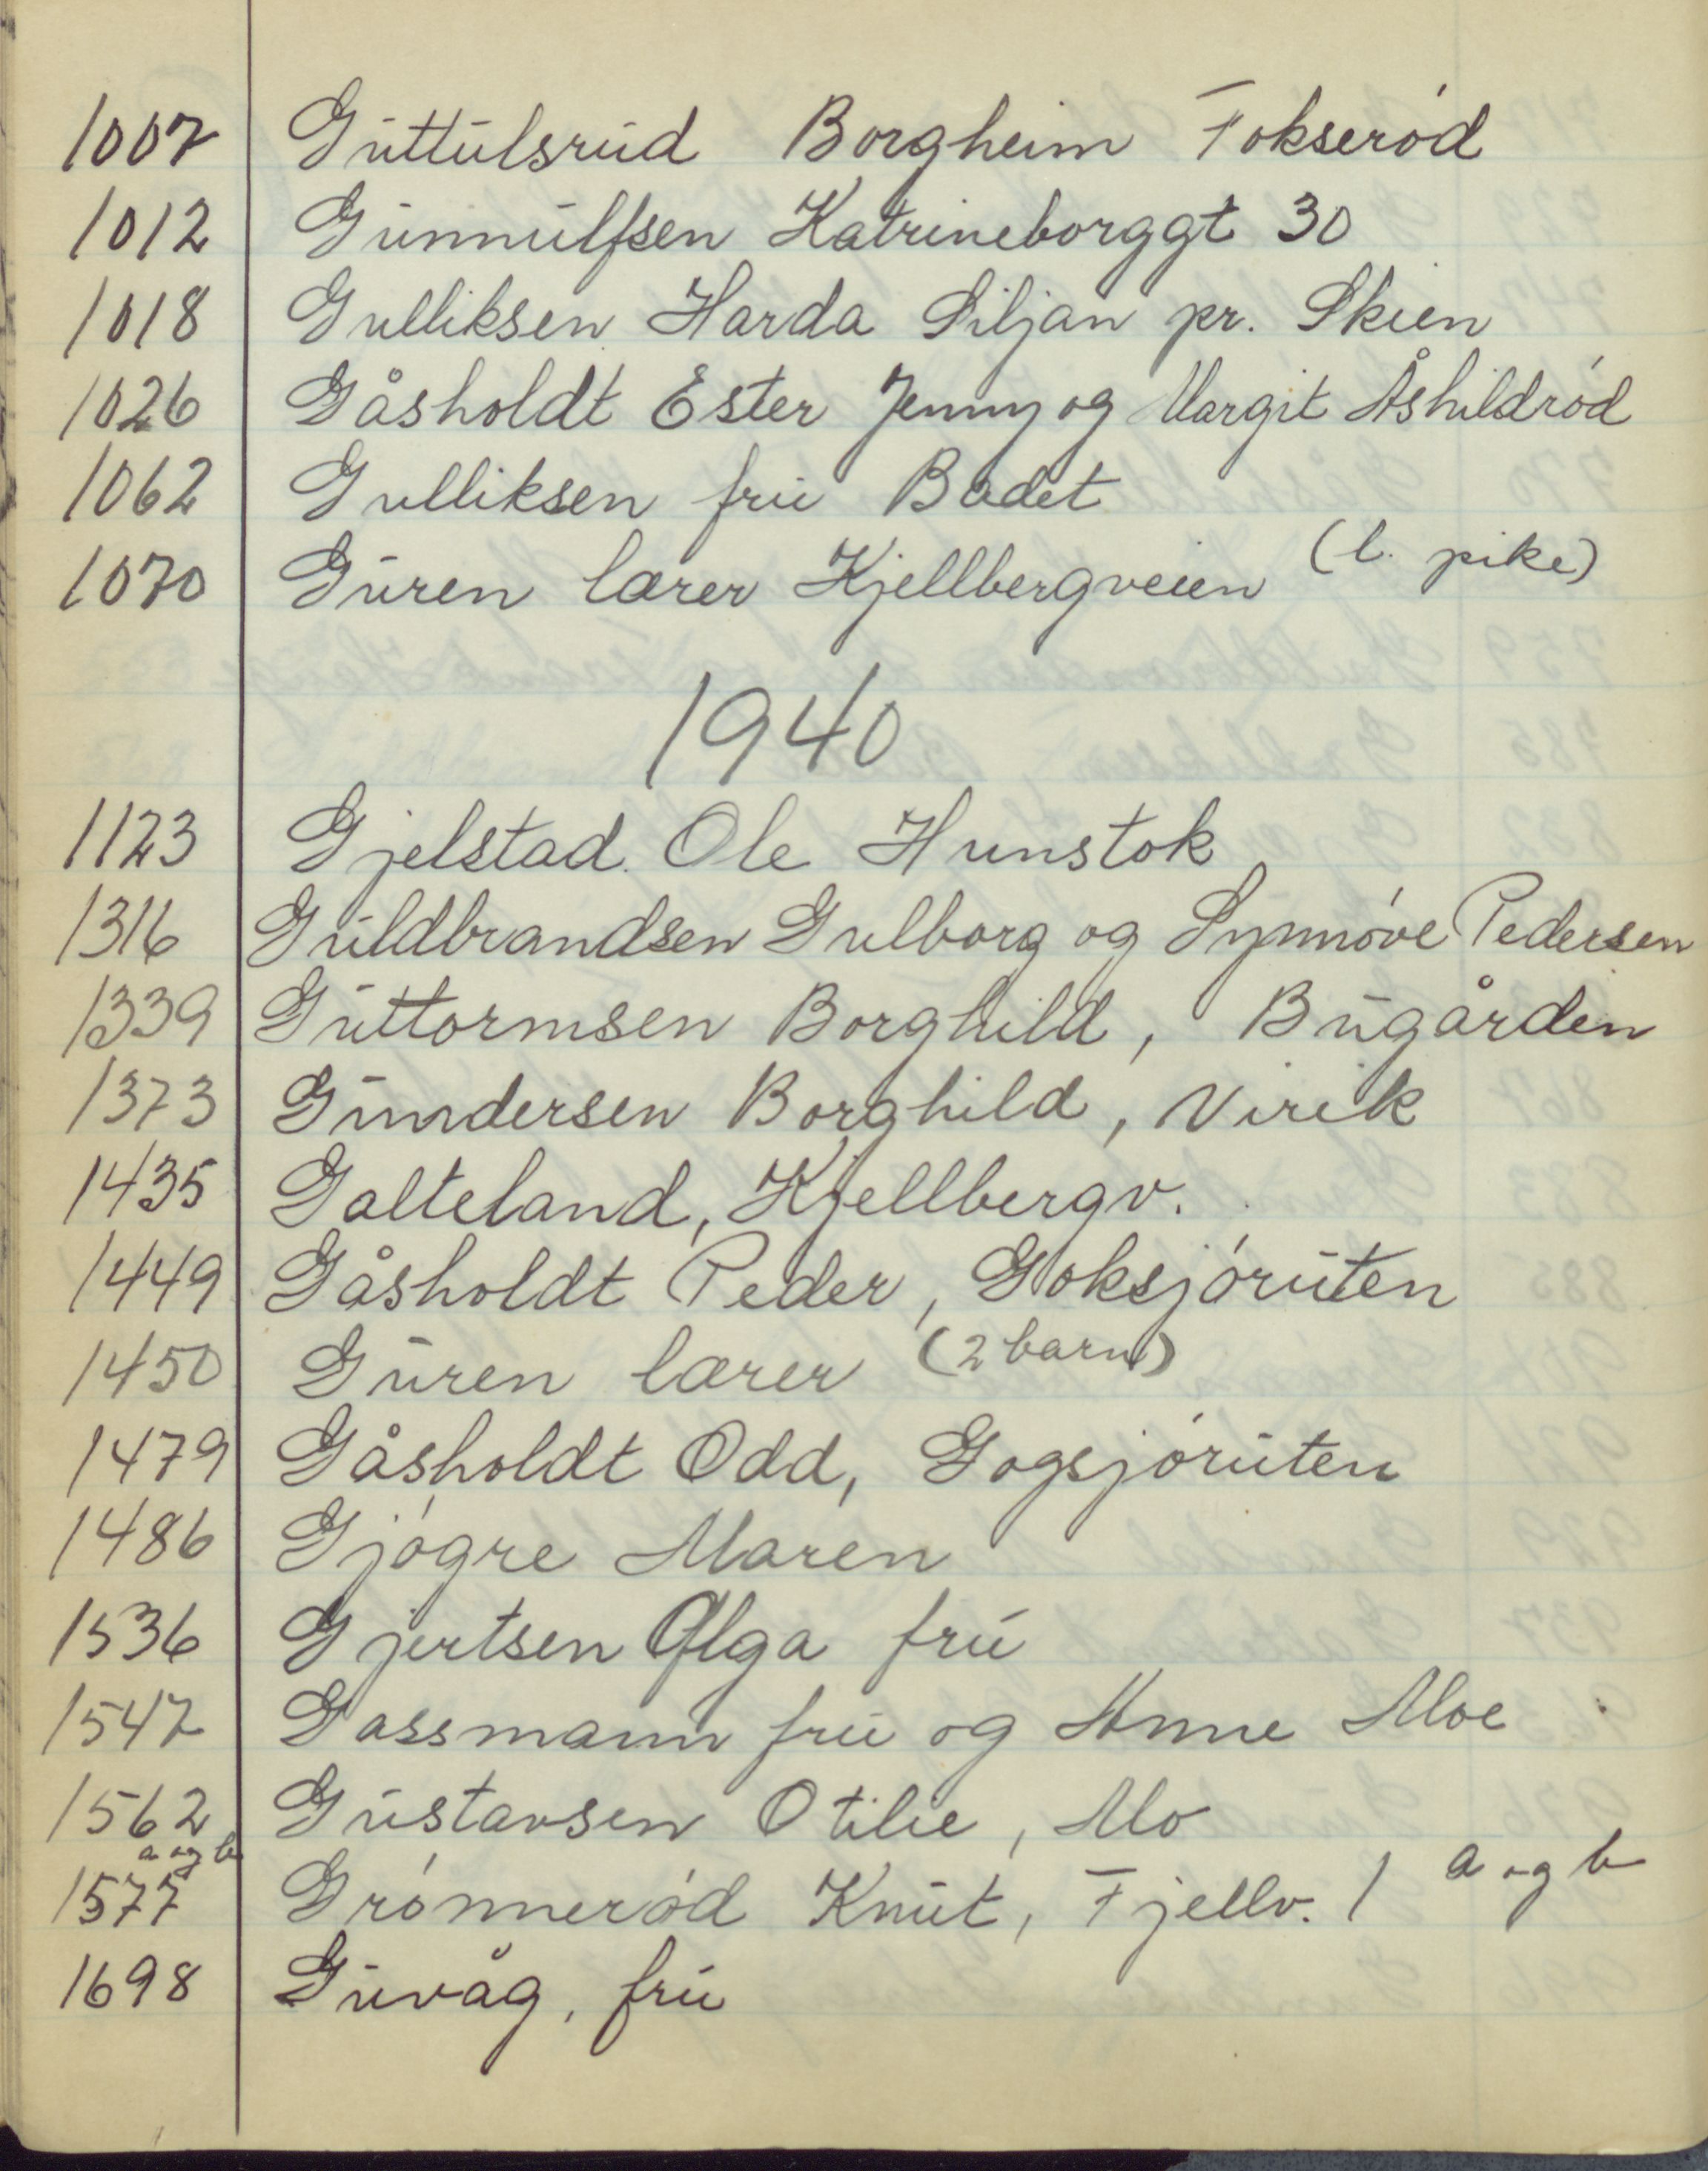 1007 Guttulsrud Borgheim Fokserød
1012 Gunnulfsen Katrineborggt 30
1018 Gulliksen Harda Siljan pr. Skien
1026 Gåsholdt Ester Jenny og Margit Åshildrød
1062 Gulliksen fru Badet
1070 Guren lærer Kjellbergveien (l. pike)
1940
1123 Gjelstad. Ole Hunstok
1316 Guldbrandsen Gulborg og Synnøve Pedersen
1339 Guttormsen Borghild, Bugården
1373 Gundersen Borghild, Virik
1435 Galteland, Kjellbergv.
1449 Gåsholdt Peder, Goksjøruten
1450 Guren lærer (2 barn)
1479 Gåsholdt Odd, Gogsjøruten
1486 Gjøgre Maren
1536 Gjertsen Olga fru
1547 Gassmann fru og Anne Moe
1562 Gustavsen Otilie, Mo
a og b
1577 Grønnerød Knut, Fjellv. 1 a og b
1698 Guvåg, fru